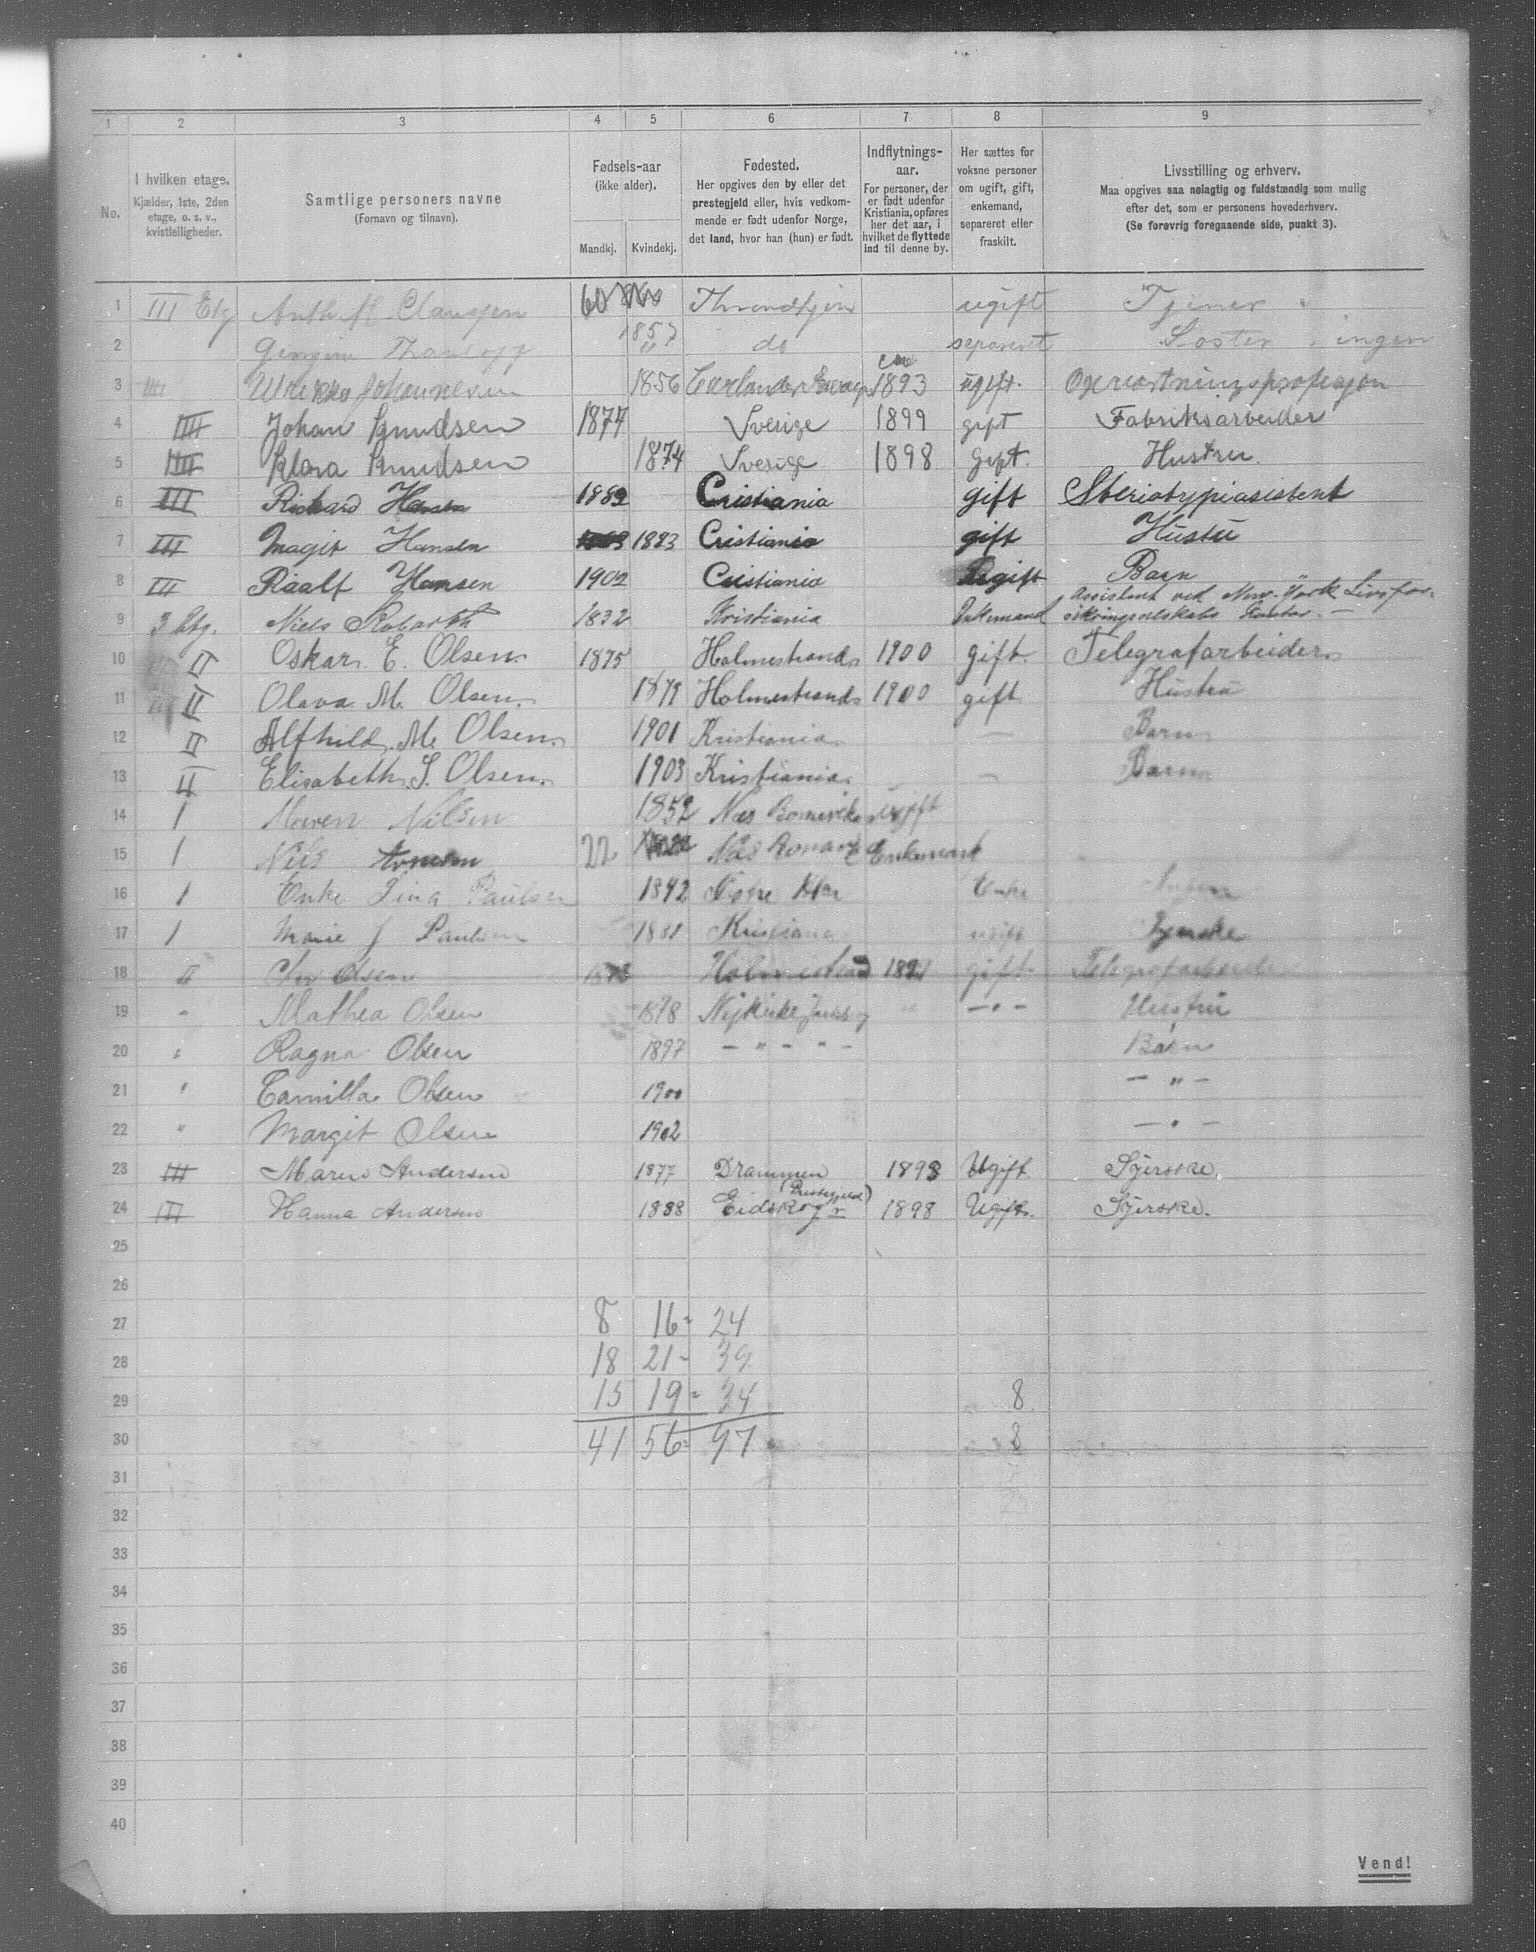 1 2 3 4 5 6 7 8 9
No.
I hvilken etage.
Kjælder, 1ste, 2den
etage, o. s. v.,
kvistleiligheder.
Samtlige personers navne
(Fornavn og tilnavn).
Fødsels-aar
(ikke alder).
Mandkj. Kvindekj.
Fødested.
Her opgives den by eller det
prestegjeld eller, hvis vedkom-
mende er født udenfor Norge,
det land, hvor han (hun) er født.
Indflytnings-
aar.
For personer, der
er født udenfor
Kristiania, opføres
her det aar, i
hvilket de flyttede
ind til denne by.
Her sættes for
voksne personer
om ugift, gift,
enkemand,
separeret eller
fraskilt.
Livsstilling og erhverv.
Maa opgives saa nøiagtig og fuldstændig som mulig
efter det, som er personens hovederhverv.
(Se forøvrig foregaaende side, punkt 3).
1 III Etg Anth M Clausen 60 Throndhjem ugift Tjener
2 1857 do separeret Søster ingen
3 IIII Johannesen 1856 1893 ugift.
4 IIII Johan Knudsen 1877 Sverige 1899 gift Fabriksarbeider
5 IIII Klara Knudsen 1874 Sverige 1898 gift. Hustru.
6 III Rickard Hansen 1882 Cristiania gift Steriotypiasistent
7 III Magit Hansen 1883 Cristiania gift Hustu
8 III Raalf Hansen 1902 Cristiania Ugift Barn
9 3 Etg. Niels Robarth 1832 Kristiania Enkemand Assistent ved New-York Livsfor-
sikringselskabs Kontor. —
10 II Oskar. E. Olsen. 1875 Holmestrand 1900 gift. Telegrafarbeider
11 II Olava. M. Olsen. 1879 Holmestrand 1900 gift. Hustru
12 II Alfhild. M. Olsen. 1901 Kristiania. — Barn
13 II Elisabeth. S. Olsen. 1903 Kristiania. — Barn
14 1 Maren Nilsen 1852 Næs Romerike ugift
15 1 Nils 22 Næs Enkemand
16 1 Enke Lina Paulsen 1842 Enke
17 1 Marie J Paulsen 1881 Kristiania ugift
18 II Olsen Holmestrand gift. Telegrafarbeid
19 " Mathea Olsen 1878 " — " — Husstru
20 " Ragna Olsen 1897 — " — " — Barn
21 " Camilla Olsen 1900 — " —
22 " Margit Olsen 1902 — " —
23 III Maren Andersen 1877 Drammen 1898 Ugift. Syerske.
24 III Hanna Andersen 1888 Eidskog (Prestegjeld) 1898 Ugift. Syerske.
25
26
27 8 16 - 24
28 18 21 - 39
29 15 19 - 34 8
30 41 56 - 97 8
31
32
33
34
35
36
37
38
39
40
Vend!